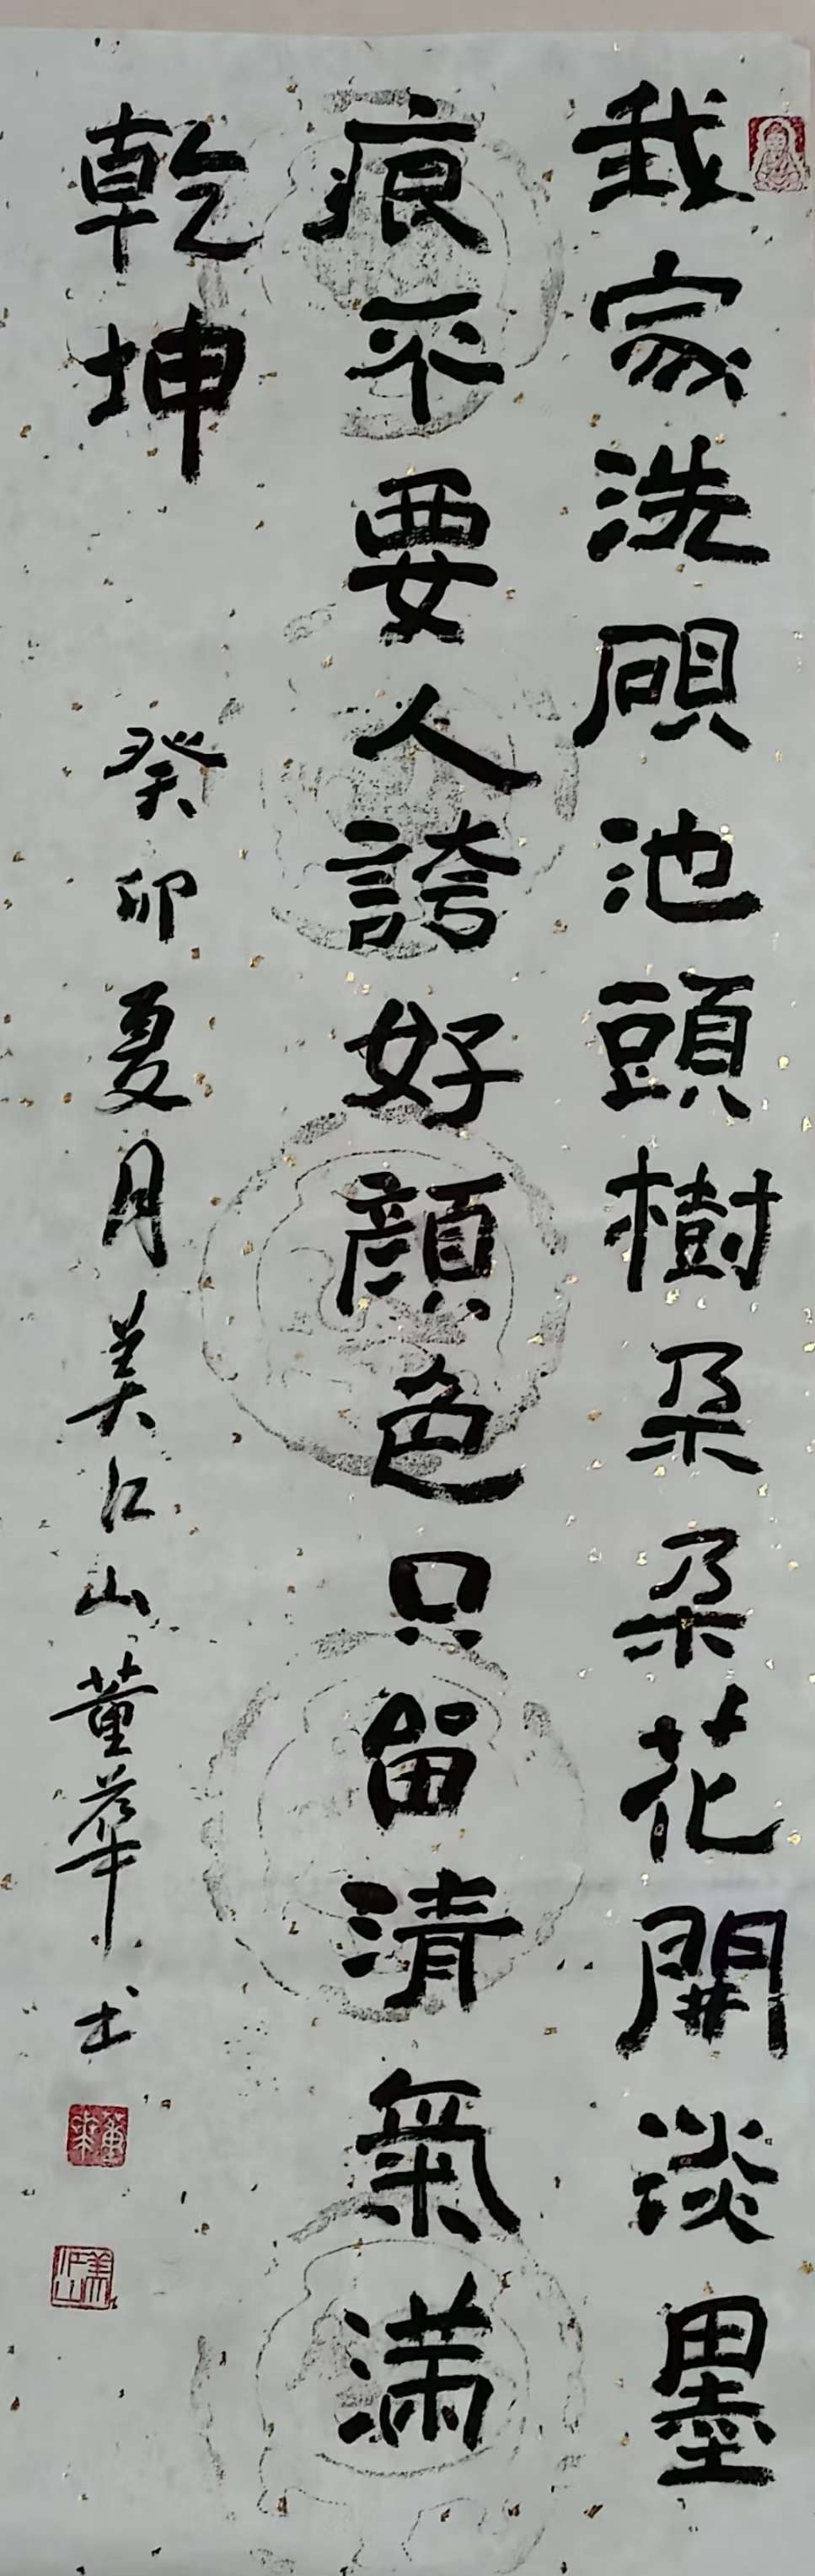 我家洗硯池頭樹朵朵花開淡墨
痕不要人誇好顔色只留清氣滿
乾坤
癸卯夏月美江山董華书